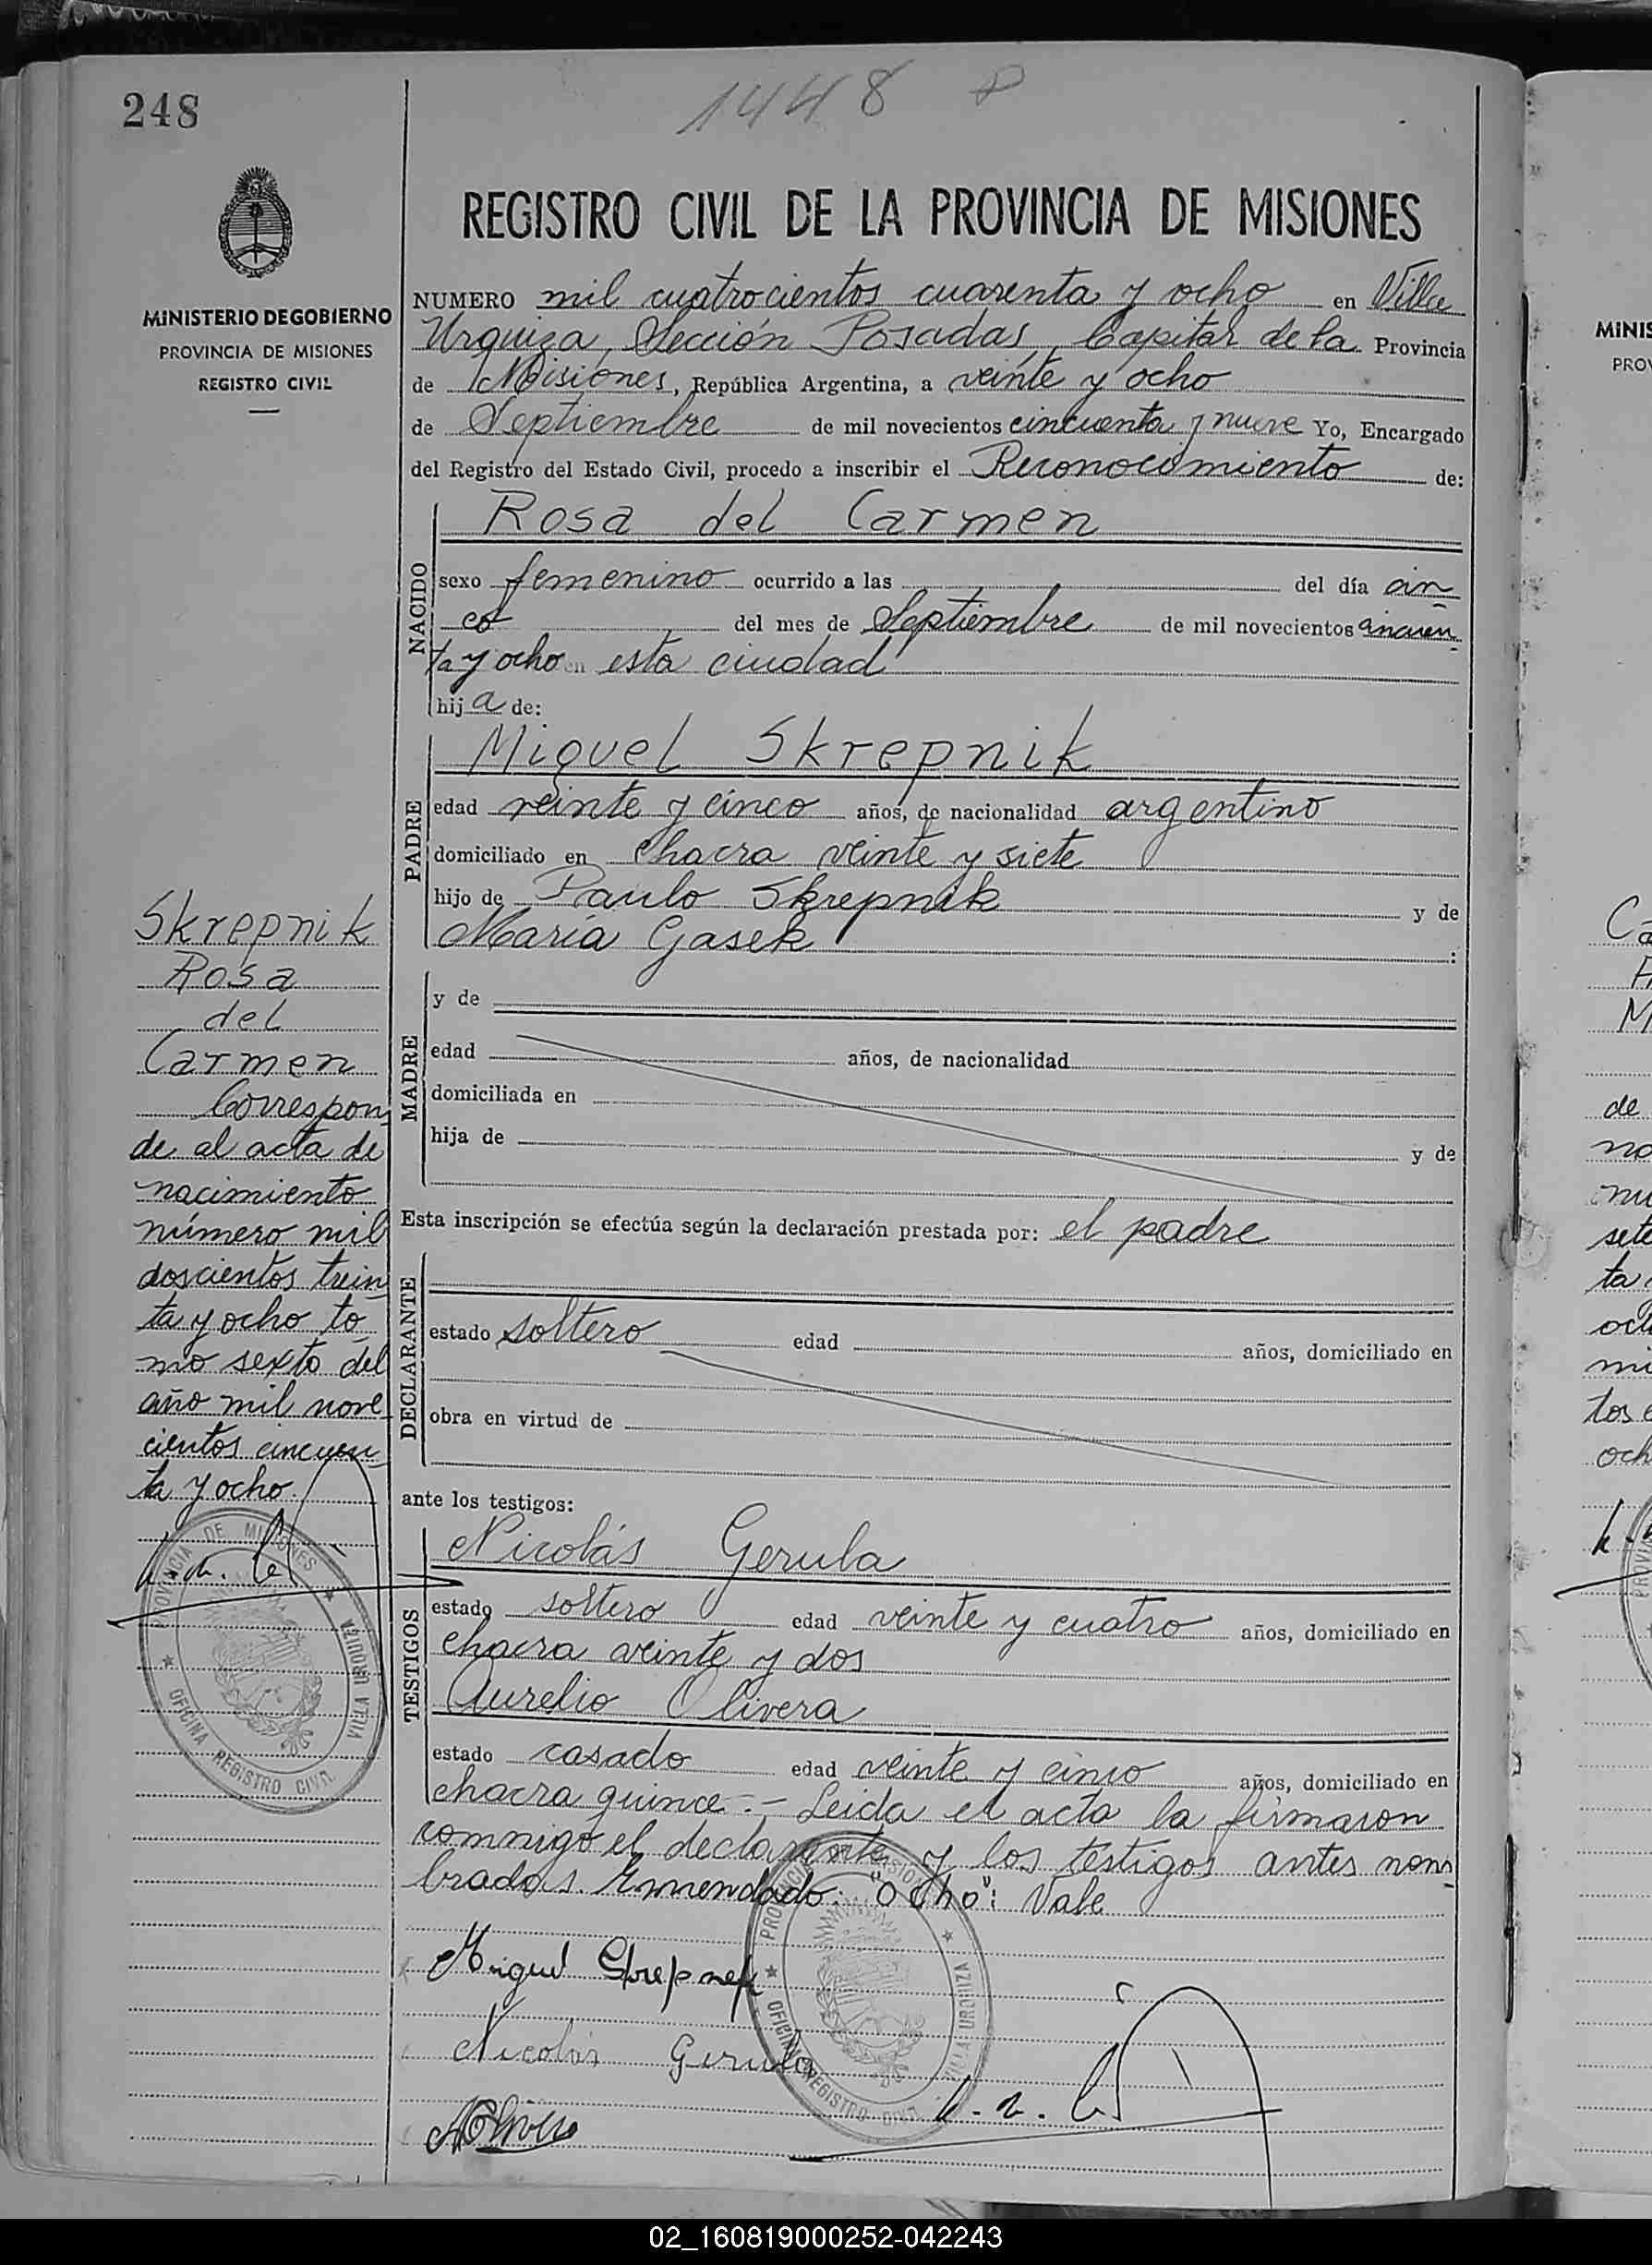 248
1448
REGISTRO CIVIL DE LA PROVINCIA DE MISIONES
MINISTERIO DE GOBIERNO
PROVINCIA DE MISIONES
REGISTRO CIVIL
NUMERO mil cuatrocientos cuarenta y ocho en Villa
Urquiza, Sección Posadas, Capital de la Provincia
de Misiones, República Argentina, a veinte y ocho
de Septiembre de mil novecientos cincuenta y nueve Yo, Encargado
del Registro del Estado Civil, procedo a inscribir el Reconocimiento de:
NACIDO
Rosa del Carmen
sexo femenino ocurrido a las del día cin-
co del mes de Septiembre de mil novecientos cincuen-
ta y ocho en esta ciudad
hija de:
PADRE
Miguel Skrepnik
edad veinte y cinco años, de nacionalidad argentino
domiciliado en chacra veinte y siete
hijo de Paulo Skrepnik y de
María Gasek :
MADRE
y de
edad años, de nacionalidad
domiciliada en
hija de y de
Esta inscripción se efectúa según la declaración prestada por: el padre
DECLARANTE
estado soltero edad años, domiciliado en
obra en virtud de
ante los testigos:
TESTIGOS
Nicolás Gerula
estado soltero edad veinte y cuatro años, domiciliado en
chacra veinte y dos
Aurelio Olivera
estado casado edad veinte y cinco años, domiciliado en
chacra quince.- Leida el acta la firmaron
comnigo el declarante y los testigos antes nom-
brados. Enmendado: "ocho": Vale
Miguel Skrepnek
Nicolás Gerula
AOlivera
PROVINCIA DE MISIONES
OFICINA REGISTRO CIVIL
VILLA URQUIZA
Skrepnik
Rosa
del
Carmen
Correspon-
de al acta de
nacimiento
número mil
doscientos trein-
ta y ocho to-
mo sexto del
año mil nove-
cientos cincuen-
ta y ocho.
PROVINCIA DE MISIONES
OFICINA REGISTRO CIVIL
VILLA URQUIZA
02_160819000252-042243